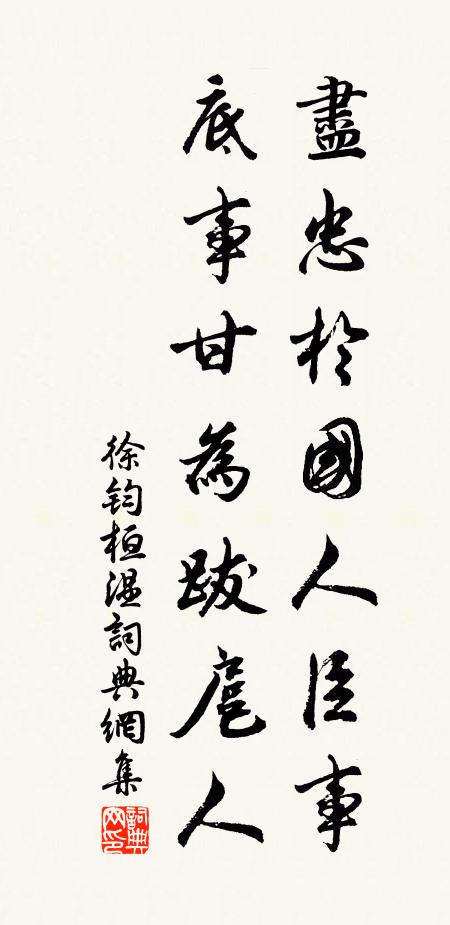 盡忠於國人臣事
底事甘為跋扈人
徐鈞桓溫詞典網集
詞典网印